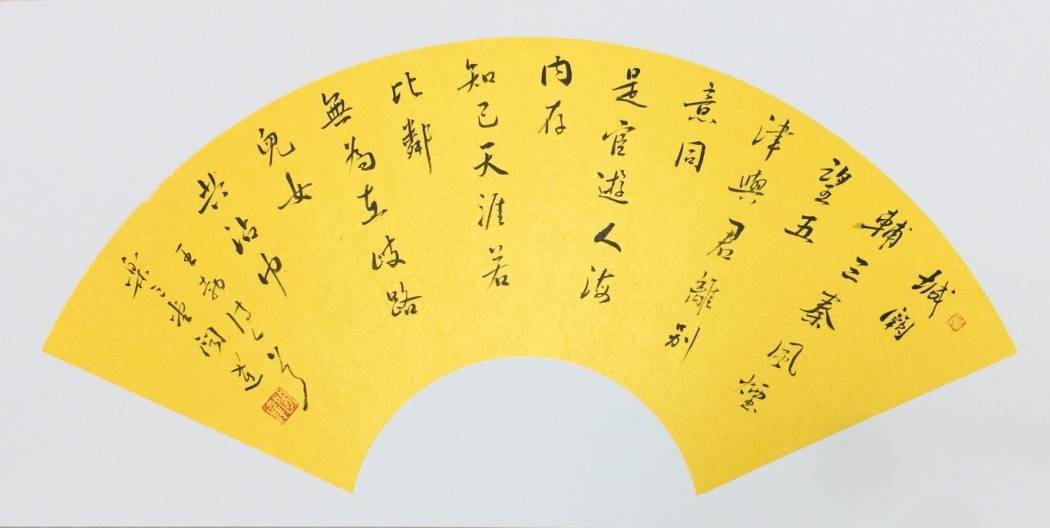 城闕
輔三秦風煙
望五
津與君離別
意同
是宦遊人海
内存
知己天涯若
比鄰
無為在歧路
兒女
共沾巾
王勃詩